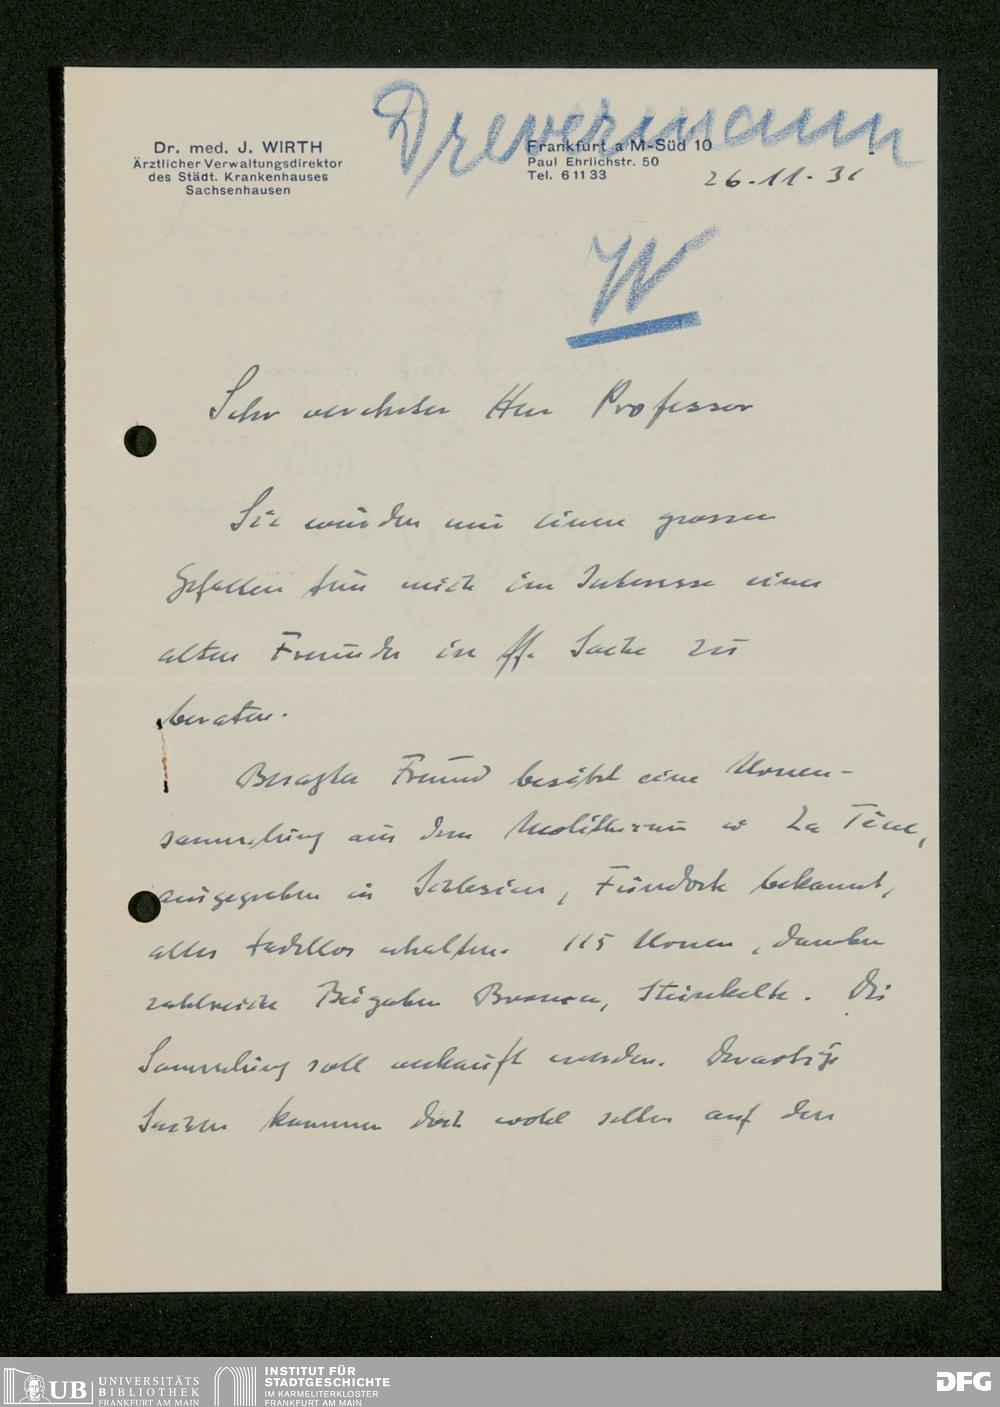 Drevermann
Dr. med. J. WIRTH
Ärztlicher Verwaltungsdirektor
des Städt. Krankenhauses
Sachsenhausen
Frankfurt a/M-Süd 10
Paul Ehrlichstr. 50
Tel. 6 11 33
26.11.31
W
Sehr verehrter Herr Professor
Sie würden mir einen grossen
Gefallen tun mich im Interesse eines
alten Freundes in ff. Sache zu
beraten.
Besagter Freund besitzt eine Urnen-
sammlung aus dem Neolithicum u. La Tène,
ausgegraben in Schlesien, Fundorte bekannt,
alles tadellos erhalten. 115 Urnen, daneben
zahlreiche Beigaben Bronce, Steinkelte. Die
Sammlung soll verkauft werden. Derartige
Sachen kommen doch wohl selten auf den
UB UNIVERSITÄTS
BIBLIOTHEK
FRANKFURT AM MAIN
INSTITUT FÜR
STADTGESCHICHTE
IM KARMELITERKLOSTER
FRANKFURT AM MAIN
DFG